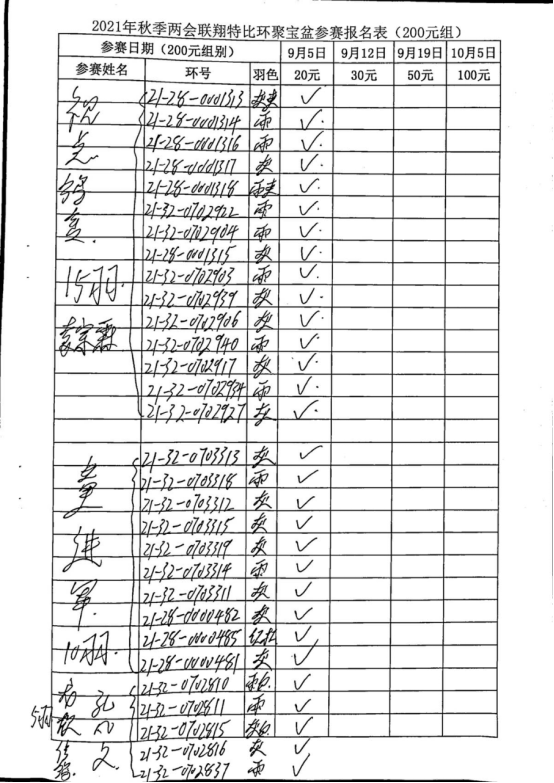 2021年秋季两会联翔特比环聚宝盆参赛报名表（200元组）
参赛日期（200元组别） 9月5日 9月12日 9月19日 10月5日
参赛姓名 环号 羽色 20元 30元 50元 100元
21-28-0001313 ✓
21-28-0001314 雨 ✓
21-28-0001316 雨 ✓
21-28-0001317 灰 ✓
21-28-0001318 ✓
21-32-0702922 雨 ✓
21-32-0702904 雨 ✓
21-28-0001315 灰 ✓
15羽 21-32-0702903 雨 ✓
21-32-0702939 灰 ✓
21-32-0702906 灰 ✓
21-32-0702940 雨 ✓
21-32-0702917 灰 ✓
21-32-0702934 雨 ✓
21-32-0702927 灰 ✓
21-32-0703313 灰 ✓
21-32-0703318 雨 ✓
21-32-0703312 灰 ✓
21-32-0703315 灰 ✓
进 21-32-0703319 灰 ✓
21-32-0703314 雨 ✓
21-32-0703311 灰 ✓
军 21-28-0000482 灰 ✓
10羽 21-28-0000485 ✓
21-28-0000481 灰 ✓
21-32-0702810 ✓
5羽 21-32-0702811 雨 ✓
21-32-0702815 ✓
21-32-0702816 灰 ✓
21-32-0702837 雨 ✓